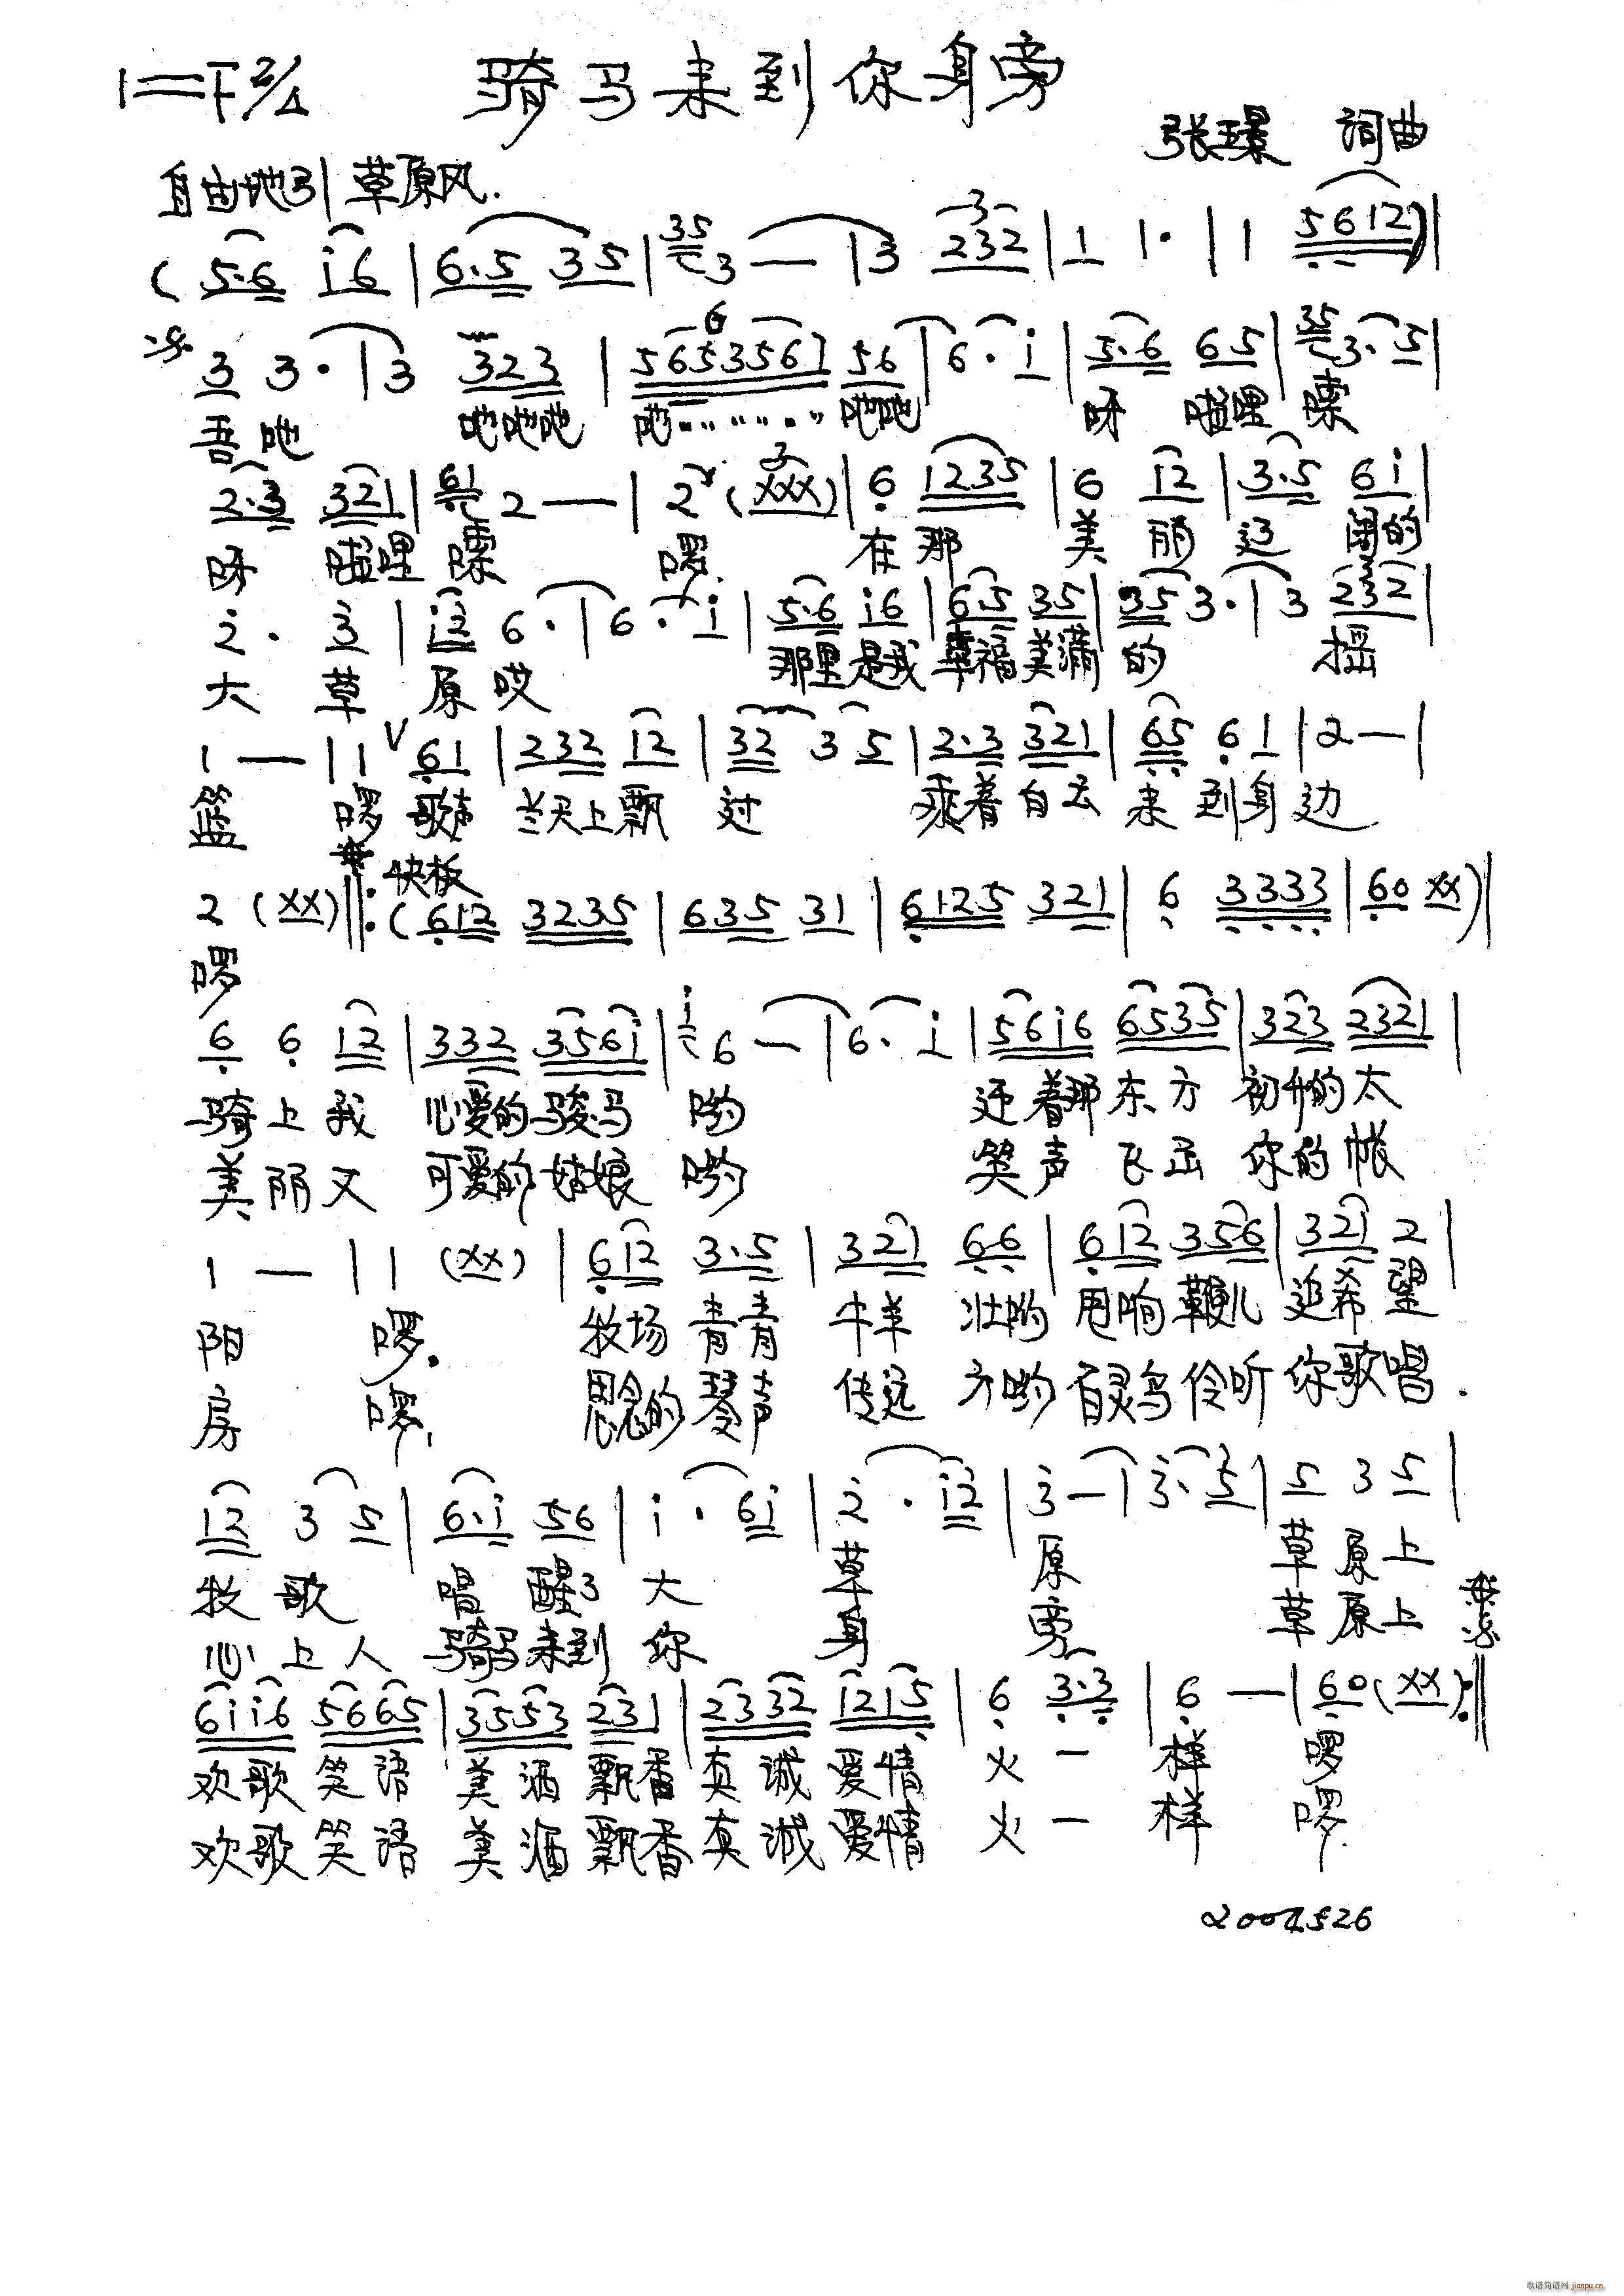 1=F 2/4 骑马来到你身旁
张璟 词曲
自由地 草原风.
(5·6 i6 | 6·5 35 | 35 3 — | 3 232 | 1 1· | 1 5612) |
3 3· | 3 323 | 5653561 56 | 6· i | 5·6 65 | 35 3· 5 |
吾吔 吔吔吔 吔…… 吔吔 呀
2·3 321 | 61 2 — | 2 (XXX) | 6 1235 | 6 12 | 3·5 6i |
呀 啰. 在那 美丽 辽阔的
2· 3 | i2 6· | 6· i | 5·6 i6 | 6·5 35 | 35 3· | 3 232 |
大草原哎 那里是我幸福美满的 摇
1 — | 1 V 61 | 232 12 | 32 3 5 | 2·3 321 | 65 6 1 | 2 — |
篮 啰 歌声 当天上飘过 乘着白云来到身边
快板
2 (XX) ‖: (612 3235 | 635 31 | 6125 321 | 6 3333 | 60 XX) |
啰
6 6 12 | 332 356i | i 6 — | 6· i | 56i6 6535 | 323 2321 |
骑上我 心爱的骏马 哟 迎着那东方 初升的太
美丽又 可爱的姑娘 哟 笑声飞出 你的帐
1 — | 1 (XX) | 612 3·5 | 321 66 | 612 356 | 321 2 |
阳 啰. 牧场青青 牛羊壮哟 甩响鞭儿 追希望
房 啰, 思念的琴声 传远方哟 百灵鸟伶听 你歌唱.
12 3 5 | 6·i 56 | i· 6i | 2· i2 | 3 — | 3· 5 | 5 3 5 |
牧歌 唱醒了大 草 原 草原上
心上人 骑马来到你 身 旁 草原上
6ii6 5665 | 3553 231 | 2332 1215 | 6 3·3 | 6 — | 60 (XX) :‖
欢歌笑语 美酒飘香 真诚爱情 火一样 啰
欢歌笑语 美酒飘香 真诚爱情 火一样 啰.
歌谱简谱网 jianpu.cn